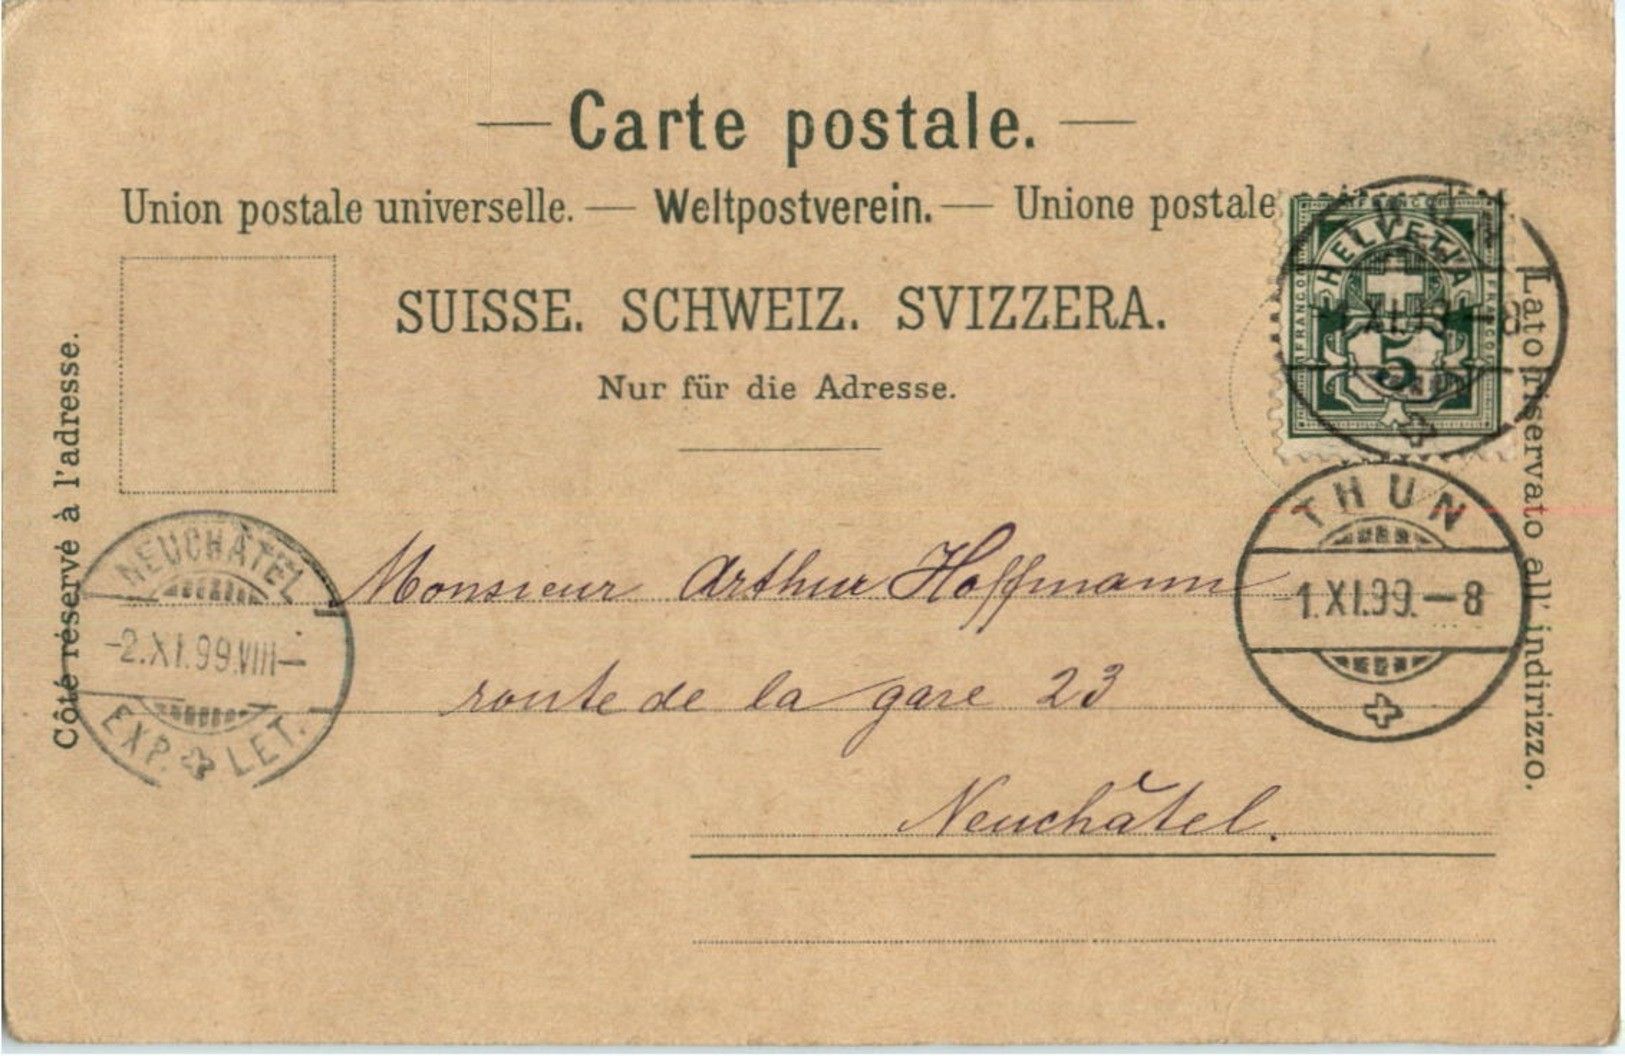 — Carte postale. —
Union postale universelle. — Weltpostverein. — Unione postale
SUISSE. SCHWEIZ. SVIZZERA.
Nur für die Adresse.
Côté réservé à l'adresse.
Lato riservato all' indirizzo.
FRANCO
HELVETIA
FRANCO
FRANCO
5
THUN
1.XI.99.—8
NEUCHÂTEL
-2.XI.99.VIII—
EXP. LET.
Monsieur Arthur Hoffmann
route de la gare 23
Neuchâtel.